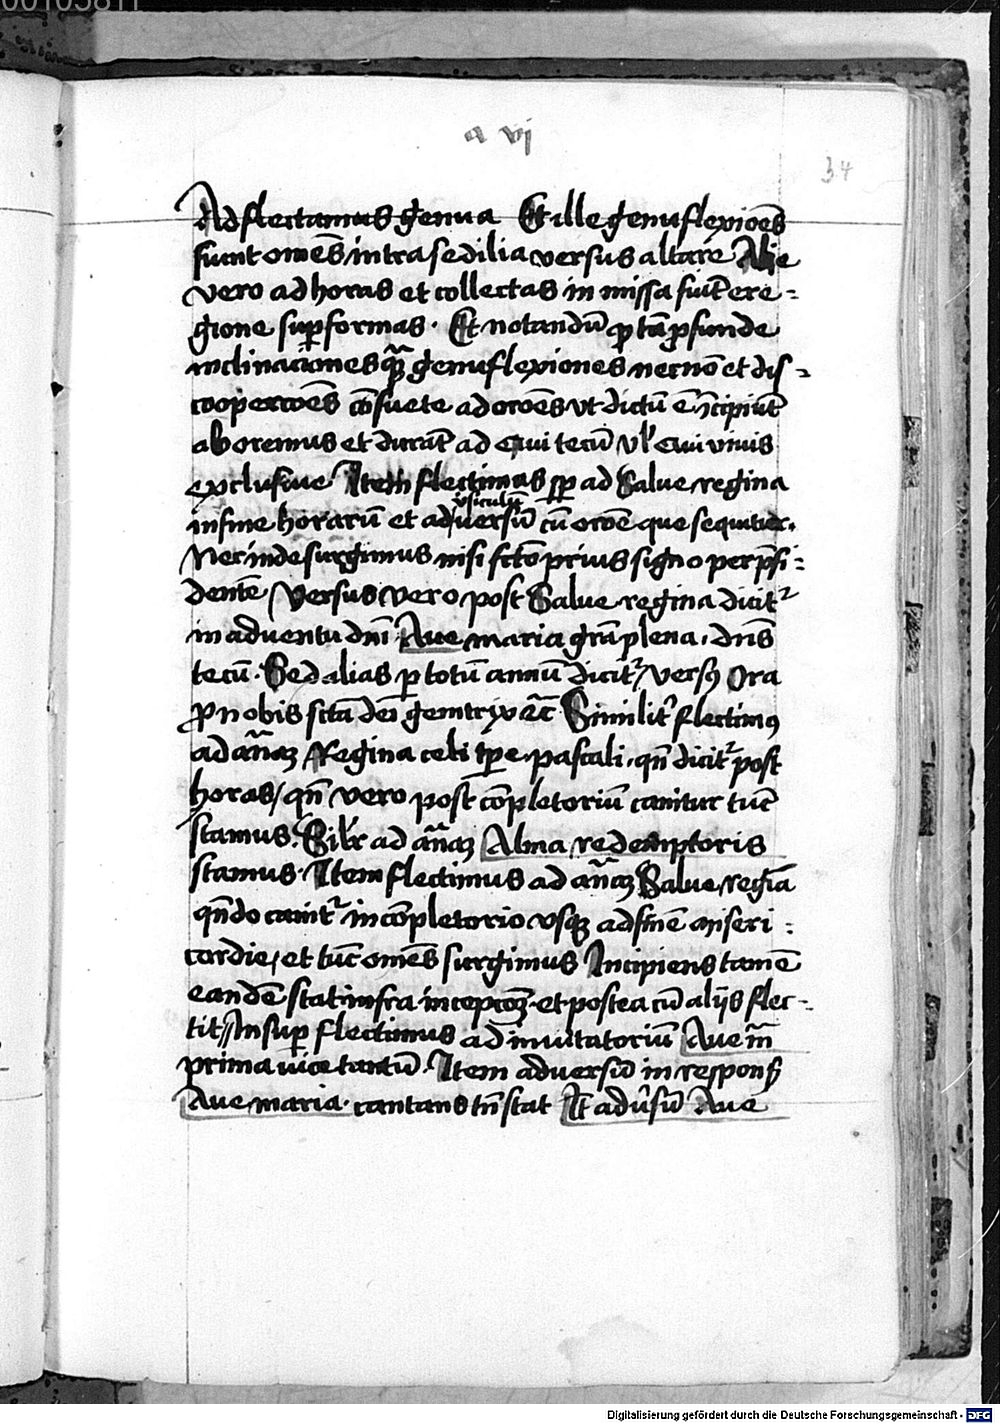 00105811
a vj
34
Ad flectamus genua Et ille genuflexiōes
fiunt om̄es intra sedilia versus altare Alie
vero ad horas et collectas in missa fiūt e re-
gione sup formas. Et notandū ꝙ tā ꝓfunde
inclinaciones qᷓꝫ genuflexiones necnō et dis-
coopercōes cōsuete ad orōes vt dictū ē īcipiūt
ab oremus et durāt ad qui tecū vl' qui viuis
exclusiue Item flectimus sp ad Salue regina
vsiculū
in fine horarū et ad versū cū orōe que sequitur.
Nec inde surgimus nisi fcō prius signo per p̄si-
dentē Versus vero post Salue regina dicit͛
in aduentu dni Aue maria grā plena. dns̄
tecū. Sed alias ꝑ totū annū dicit͛ versꝯ Ora
ꝓ nobis sctā dei genitrix etc̄ Similit͛ flectimꝯ
ad an̄aꝫ Regina celi tp̄e pascali. qn̄ dicit͛ post
horas/ qn̄ vero post cōpletoriū canitur tūc
stamus. Silr ad an̄aꝫ Alma redemptoris
stamus. Item flectimus ad an̄aꝫ Salue regīa
qn̄do canit͛ in cōpletorio vsqꝫ ad finē miseri-
cordie/ et tūc om̄es surgimus Incipiens tamē
eandē stat infra incepcōꝫ. et postea cū alijs flec-
tit// Insup flectimus ad inuitatoriū Aue m̄
prima vice tantū. Item ad versū in respons̄
Aue maria. cantans tn̄ stat It ad v̄sū Aue
Digitalisierung gefördert durch die Deutsche Forschungsgemeinschaft - DFG